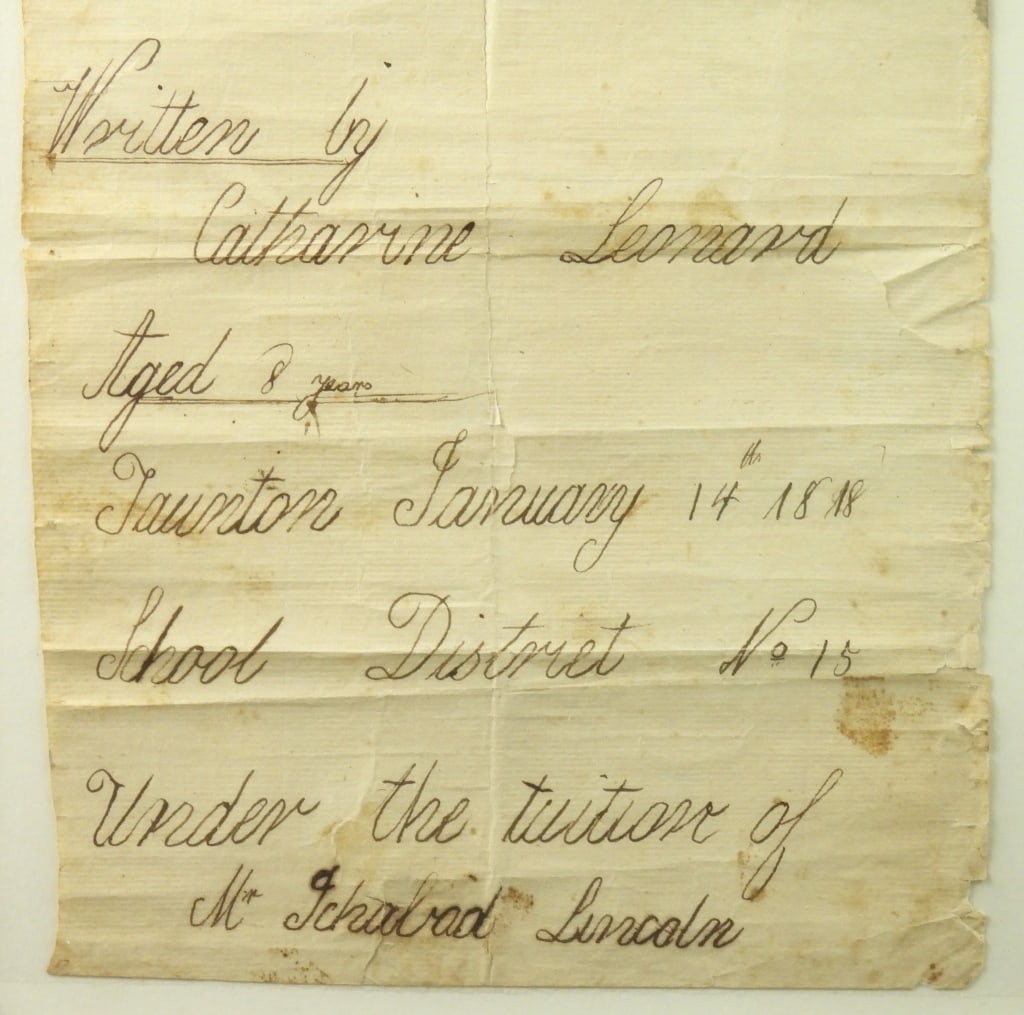 Written by
Catharine Leonard
Aged 8 years
Taunton January 14th 1818
School District No 15
Under the tuition of
Mr Ichabod Lincoln